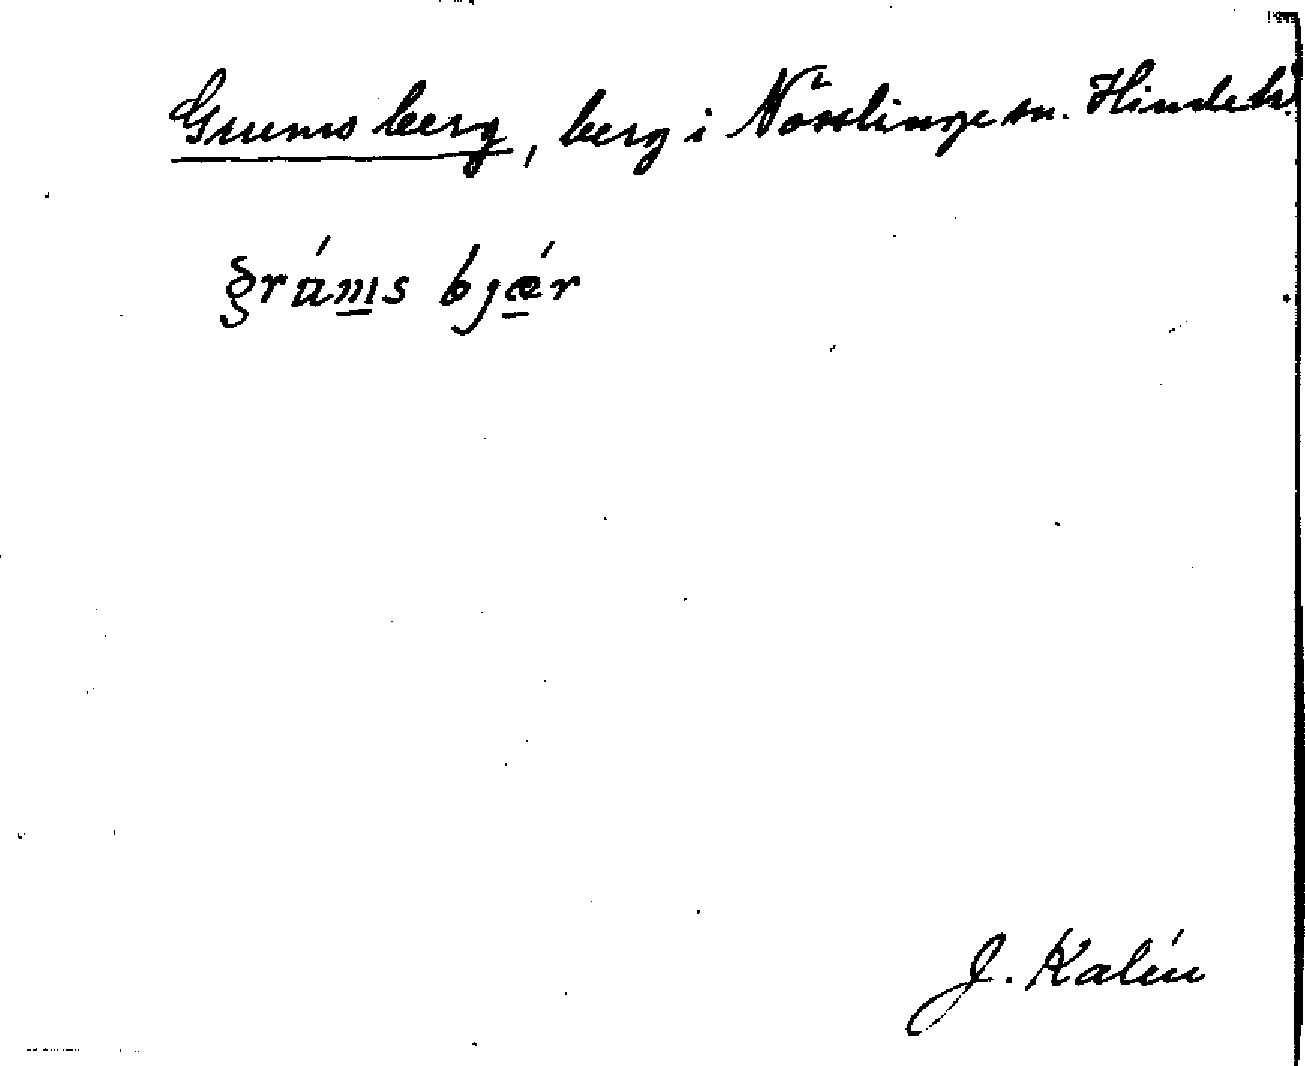 Grumsberg, berg i Nösslinge sn. Himle hd
grám̲s bjǽ̲r
J. Kalén